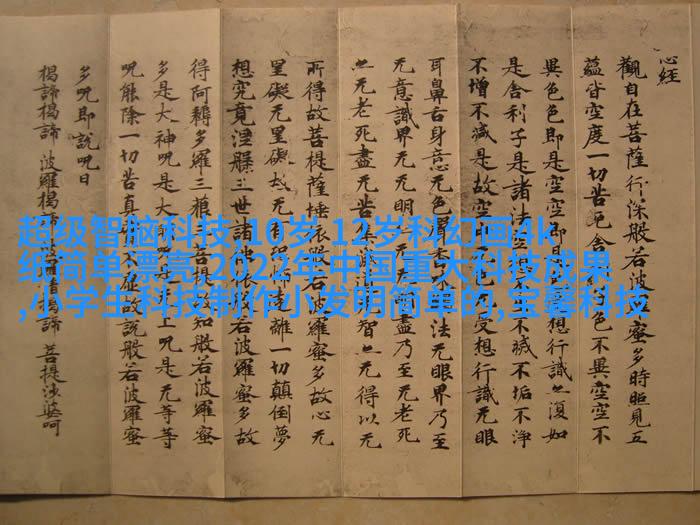 心经
觀自在菩薩行深般若波羅蜜多時照見五
蘊皆空度一切苦厄舍利子色不異空空不
異色色即是空空即是色受想行識亦復如
是舍利子是諸法空相不生不滅不垢不淨
不增不減是故空中无色无受想行識无眼
耳鼻舌身意无色聲香味觸法无眼界乃至
无意識界无无明亦无无明盡乃至无老死
亦无老死盡无苦集滅道无智亦无得以无
所得故菩提薩埵依般若波羅蜜多故心无
罣礙无罣礙故无有恐怖遠離一切顛倒夢
想究竟涅槃三世諸佛依般若波羅蜜多故
得阿耨多羅三藐三菩提故知般若波羅蜜
多是大神呪是大明呪是无上呪是无等等
呪能除一切苦真實不虛故說般若波羅蜜
多呪即說呪曰
揭諦揭諦 波羅揭諦 波羅僧揭諦 菩提娑婆呵
超级智脑科技,10岁-12岁科幻画4k
纸简单,漂亮,2022年中国重大科技成果
,小学生科技制作小发明简单的,宝馨科技